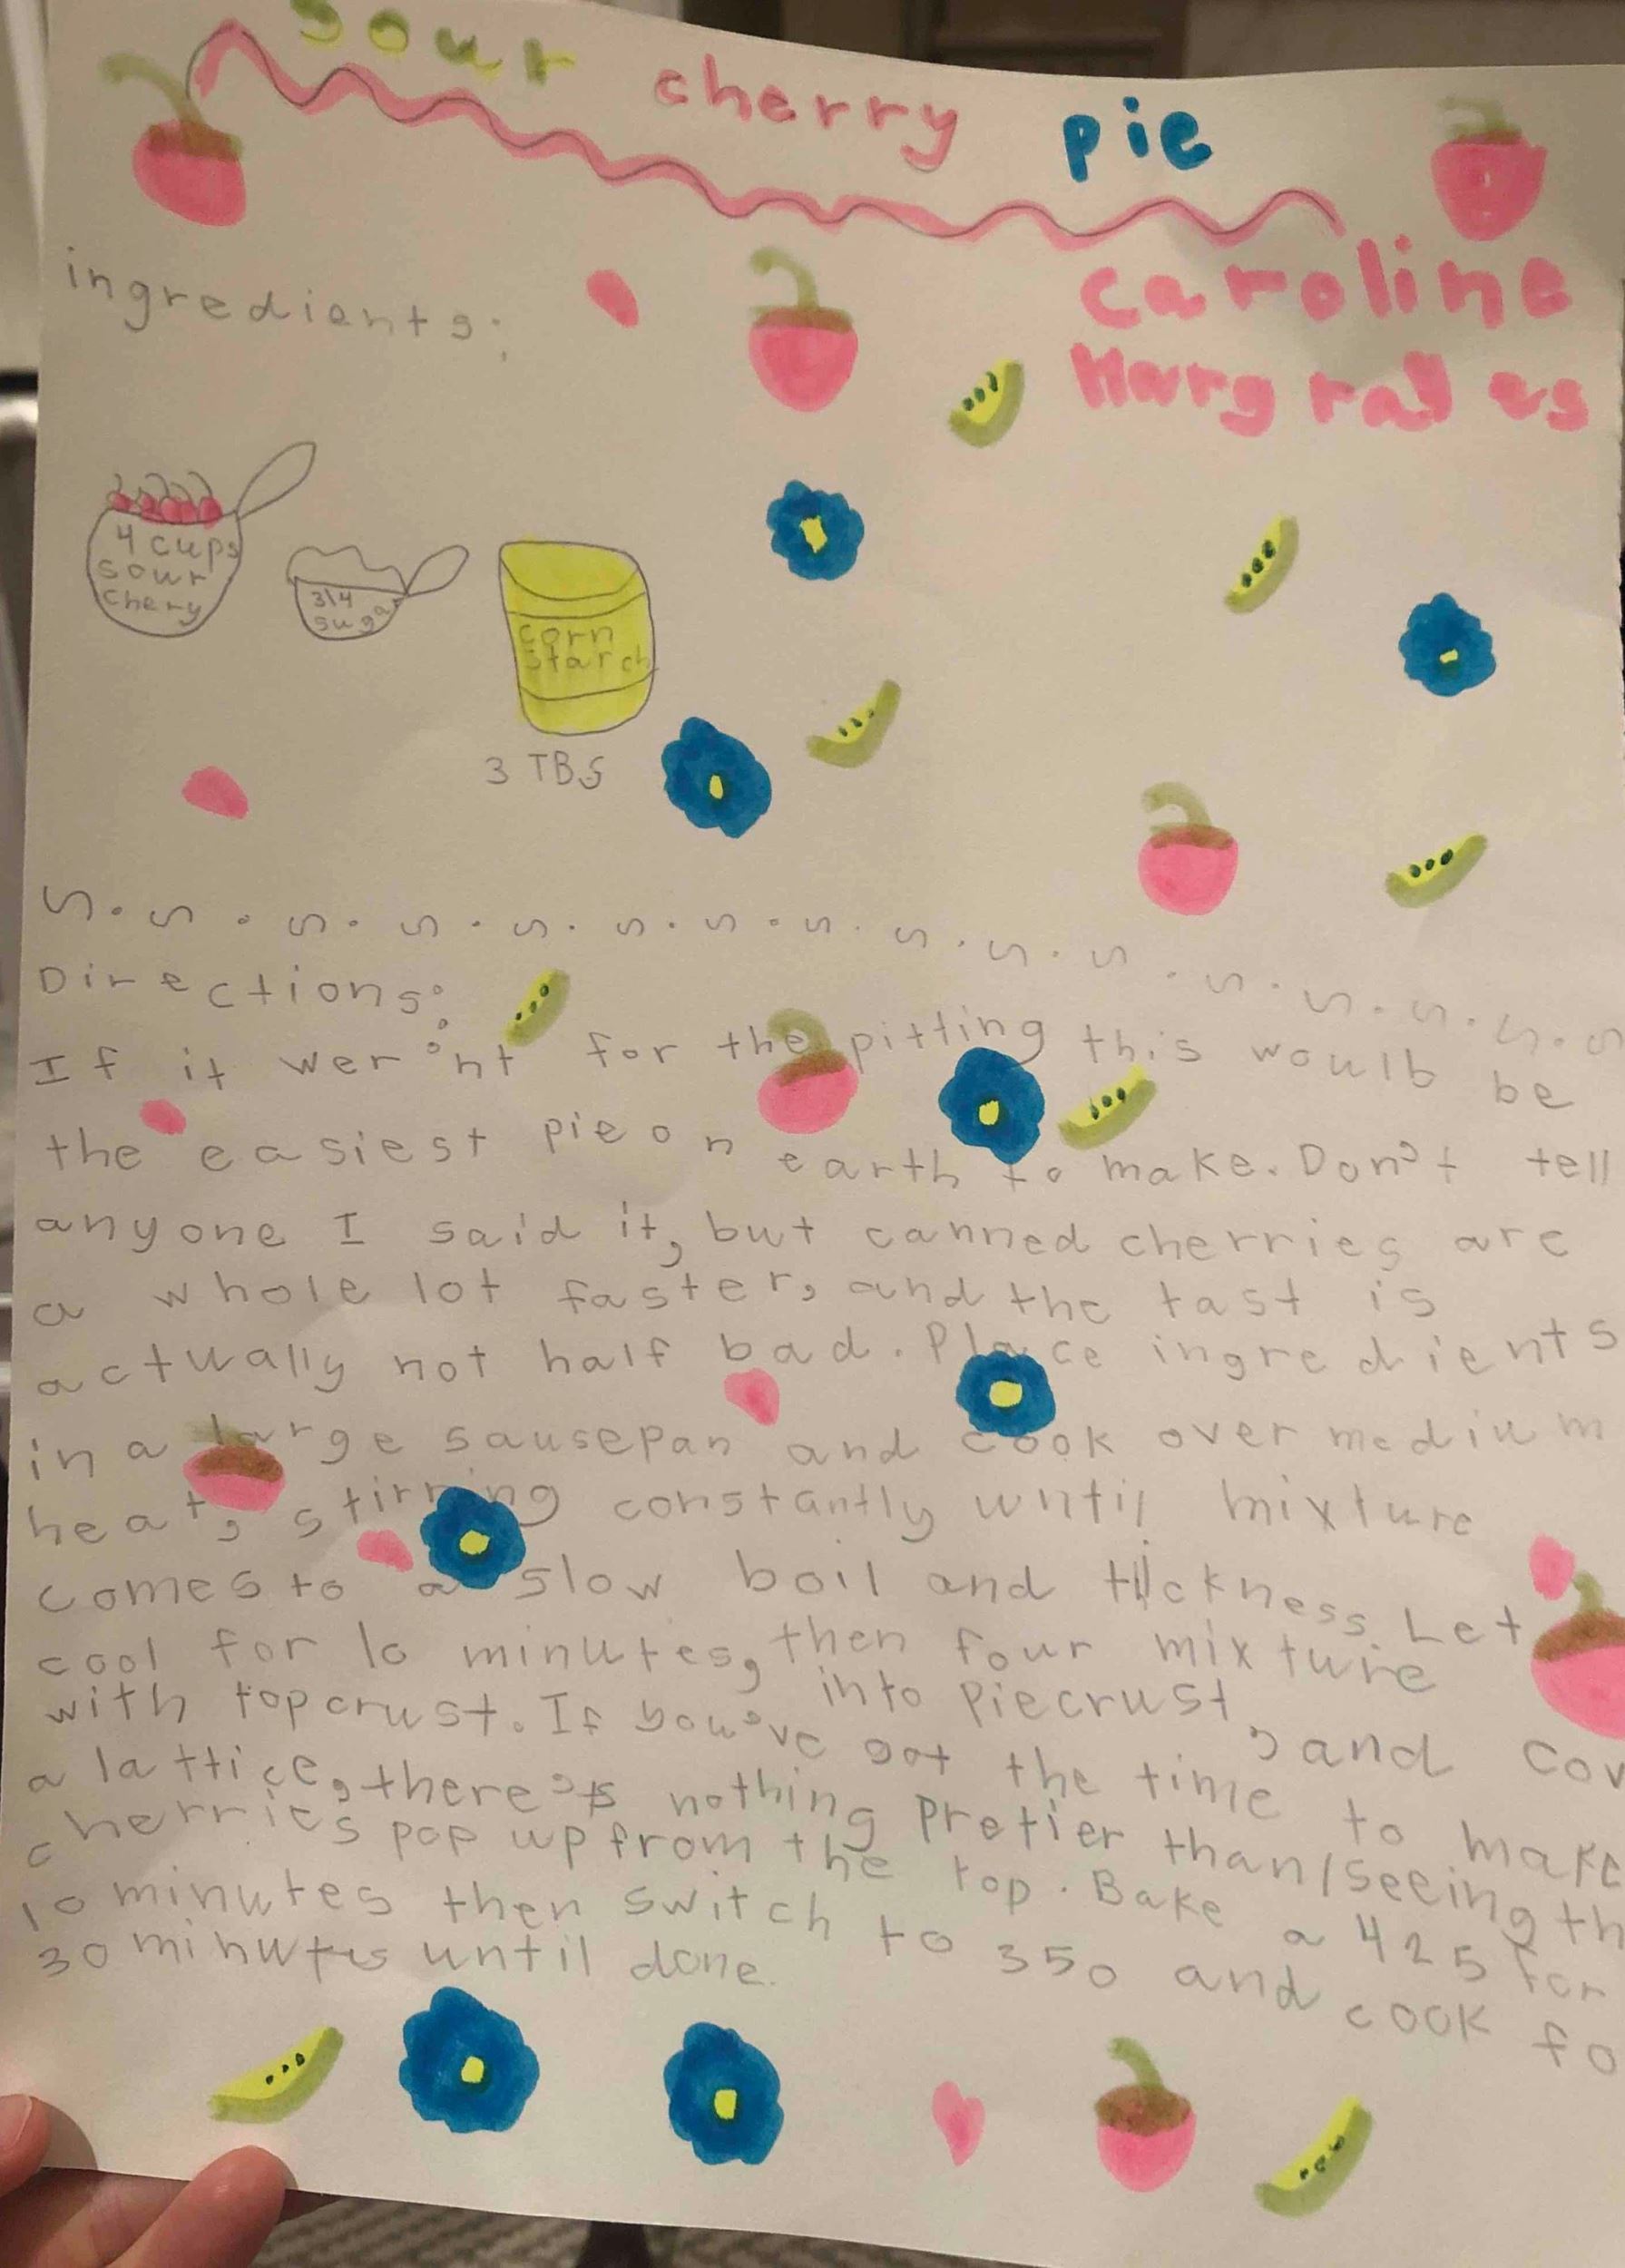 sour cherry pie
caroline
Hargraves
ingredients:
4 cups
sour
chery
3/4
sugar
corn
starch
3 TBS
Directions:
If it wer'nt for the pitting this woulb be
the easiest pie on earth to make. Don't tell
anyone I said it, but canned cherries are
a whole lot faster, and the tast is
actually not half bad. Place ingredients
in a large sausepan and cook over medium
heat, stirring constantly until mixture
comes to a slow boil and thickness. Let
cool for 10 minutes, then four mixture
into piecrust, and cov
with topcrust. If you've got the time to make
a lattice, there's nothing pretier than seeing th
cherries pop up from the top. Bake a 425 for
10 minutes then switch to 350 and cook fo
30 minutes until done.